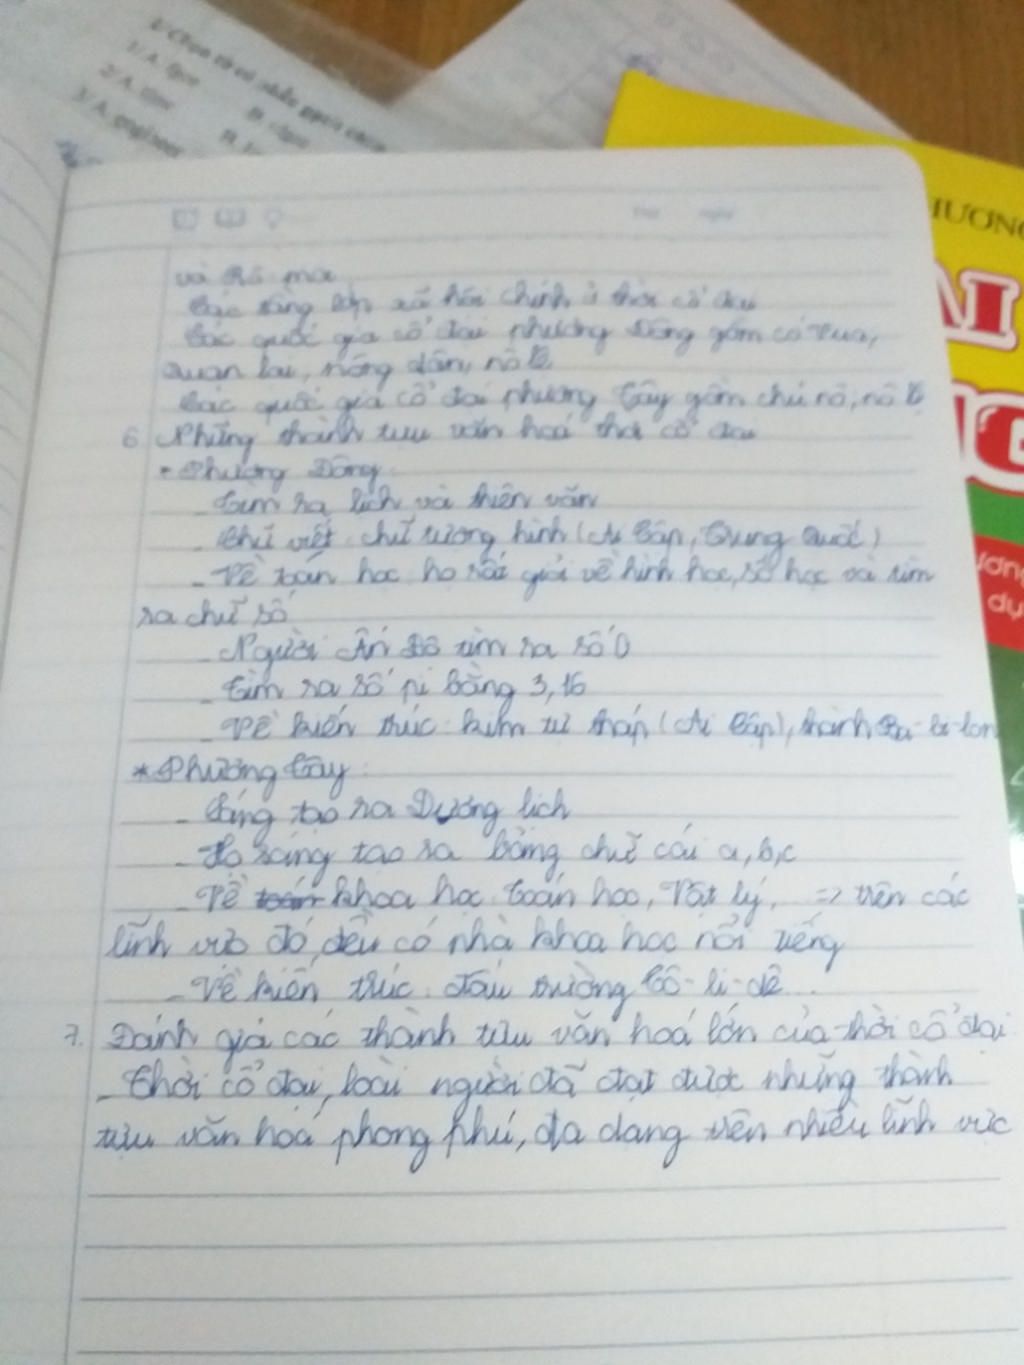 1/ A.
B.
2/ A.
3/ A. engineer
HƯƠNG
AI
NG
dụ
và Rô ma
Các tầng lớp xã hội chính ở thời cổ đại
Các quốc gia cổ đại phương Đông gồm có vua,
quan lại, nông dân, nô lệ
Các quốc gia cổ đại phương Tây gồm chủ nô, nô lệ
6 Những thành tựu văn hoá thời cổ đại
* Phương Đông:
- Tìm ra lịch và thiên văn
- Chữ viết: chữ tượng hình (Ai Cập, Trung Quốc)
- Về toán học: họ rất giỏi về hình học, số học và tìm
ra chữ số
- Người Ấn Độ tìm ra số 0
- Tìm ra số pi bằng 3,16
- Về kiến trúc: kim tự tháp (Ai Cập), thành Ba-bi-lon
* Phương Tây:
- Sáng tạo ra Dương lịch
- Họ sáng tạo ra bảng chữ cái a, b, c
- Về toán khoa học: Toán học, Vật lý, => trên các
lĩnh vực đó, đều có nhà khoa học nổi tiếng
- Về kiến trúc: đấu trường Cô-li-dê...
7. Đánh giá các thành tựu văn hoá lớn của thời cổ đại
- Thời cổ đại, loài người đã đạt được những thành
tựu văn hoá phong phú, đa dạng trên nhiều lĩnh vực